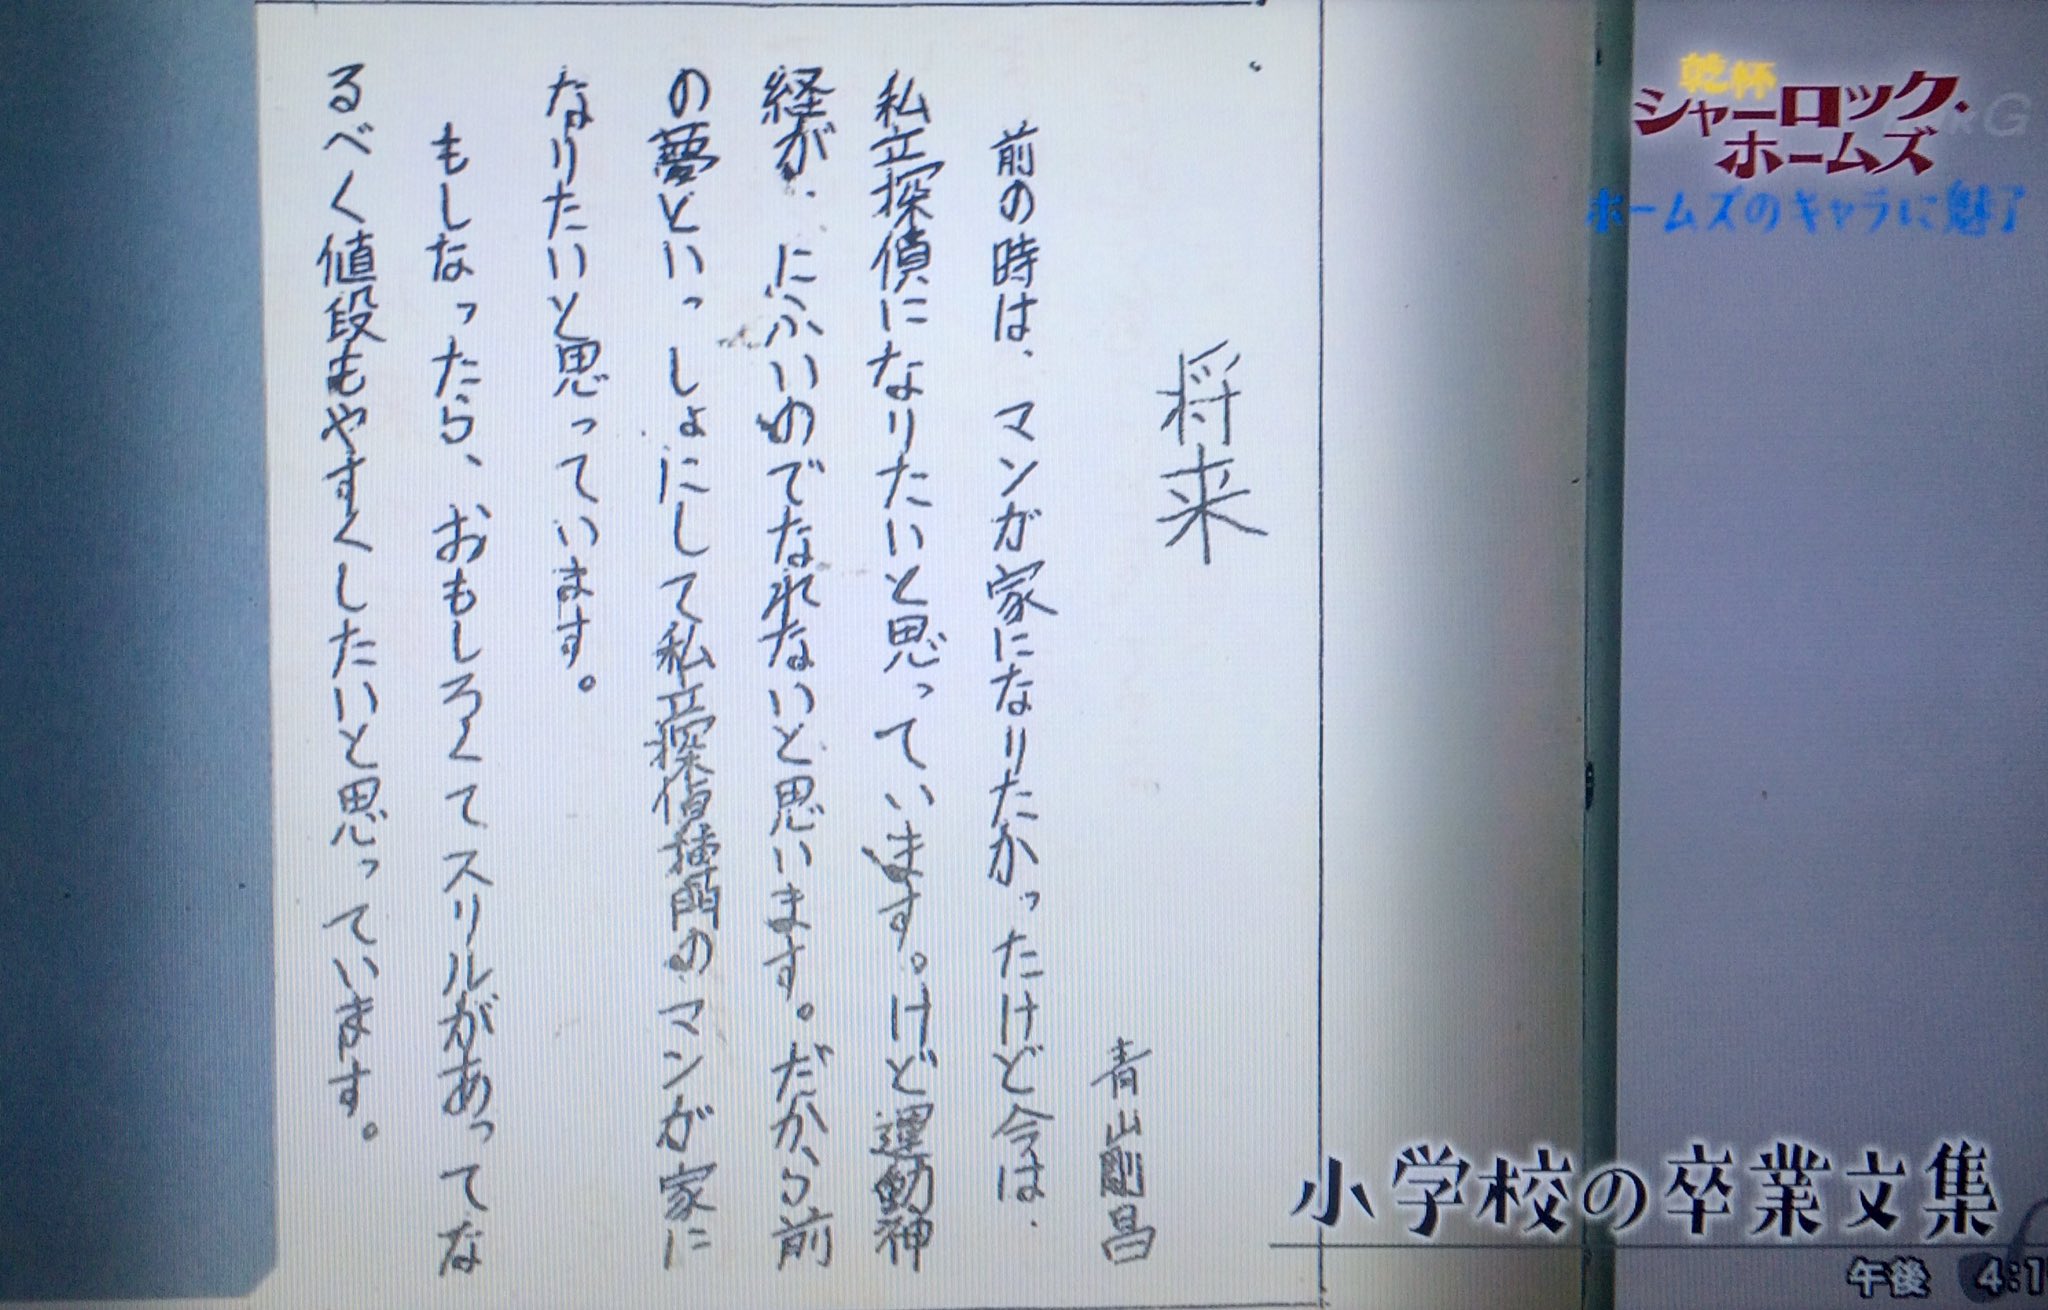 将来
青山剛昌
前の時は、マンガ家になりたかったけど今は、
私立探偵になりたいと思っています。けど運動神
経が、にぶいのでなれないと思います。だから前
の夢といっしょにして私立探偵専門のマンガ家に
なりたいと思っています。
もしなったら、おもしろくてスリルがあってな
るべく値段もやすくしたいと思っています。
乾杯
シャーロック・
ホームズ
ホームズのキャラに魅了
小学校の卒業文集
午後 4:1